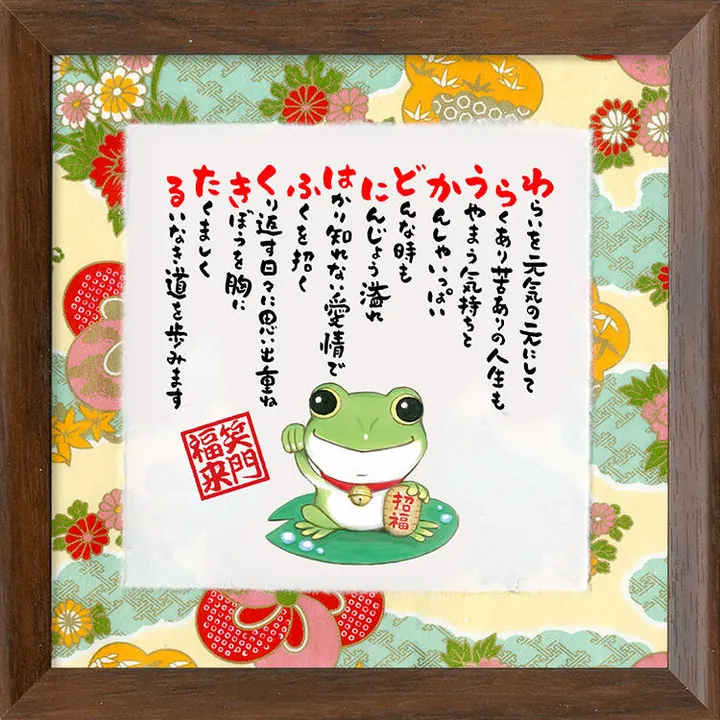 わらいを元気の元にして
らくあり苦ありの人生も
うやまう気持ちと
かんしゃいっぱい
どんな時も
にんじょう溢れ
はかり知れない愛情で
ふくを招く
くり返す日々に思い出重ね
きぼうを胸に
たくましく
るいなき道を歩みます
笑門
福来
招福